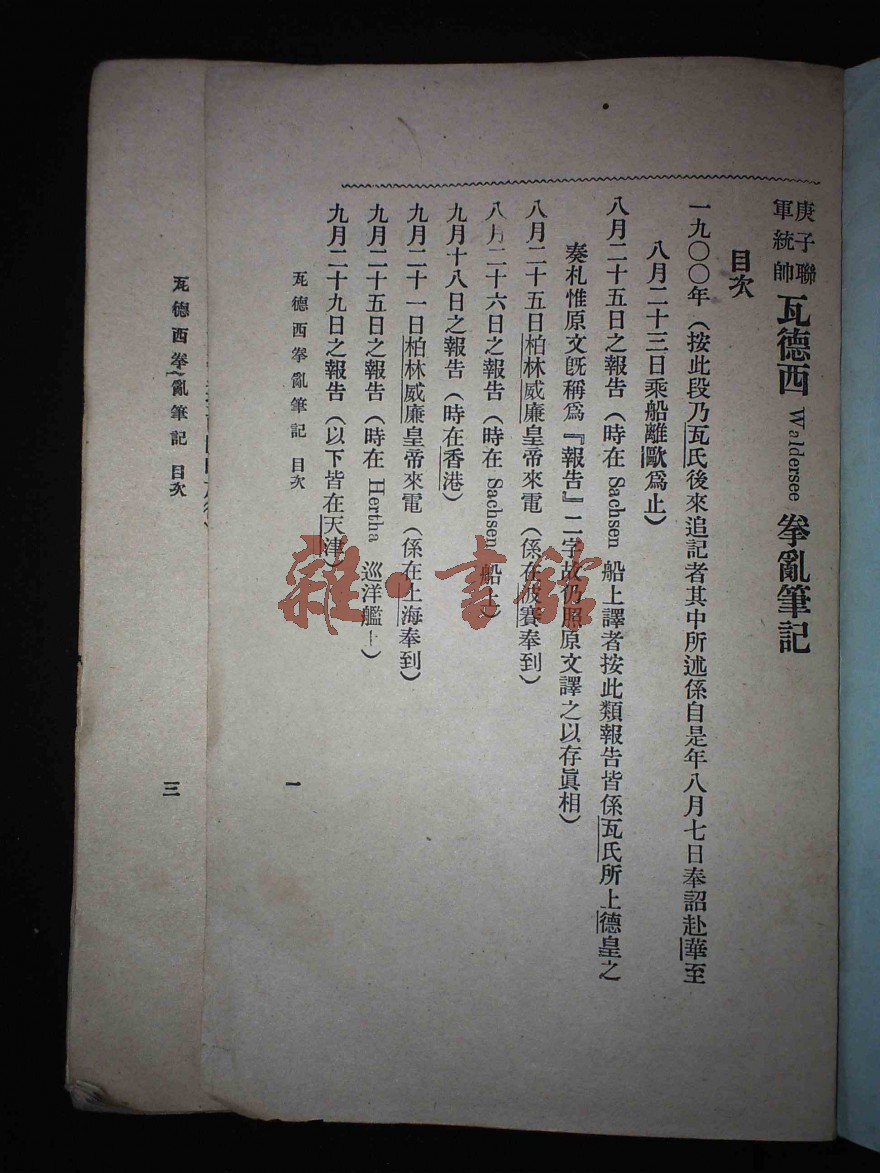 庚子聯
軍統帥
瓦德西 Waldersee 拳亂筆記
目次
一九〇〇年(按此段乃瓦氏後來追記者其中所述係自是年八月七日奉詔赴華至
八月二十三日乘船離歐爲止)
八月二十五日之報告(時在 Sachsen 船上譯者按此類報告皆係瓦氏所上德皇之
奏札惟原文旣稱爲『報告』二字故仍照原文譯之以存眞相)
八月二十五日柏林威廉皇帝來電(係在波賽奉到)
八月二十六日之報告(時在 Sachsen 船上)
九月十八日之報告(時在香港)
九月二十一日柏林威廉皇帝來電(係在上海奉到)
九月二十五日之報告(時在 Hertha 巡洋艦上)
九月二十九日之報告(以下皆在天津)
瓦德西拳亂筆記 目次
一
瓦德西拳亂筆記 目次
三
雜·書館